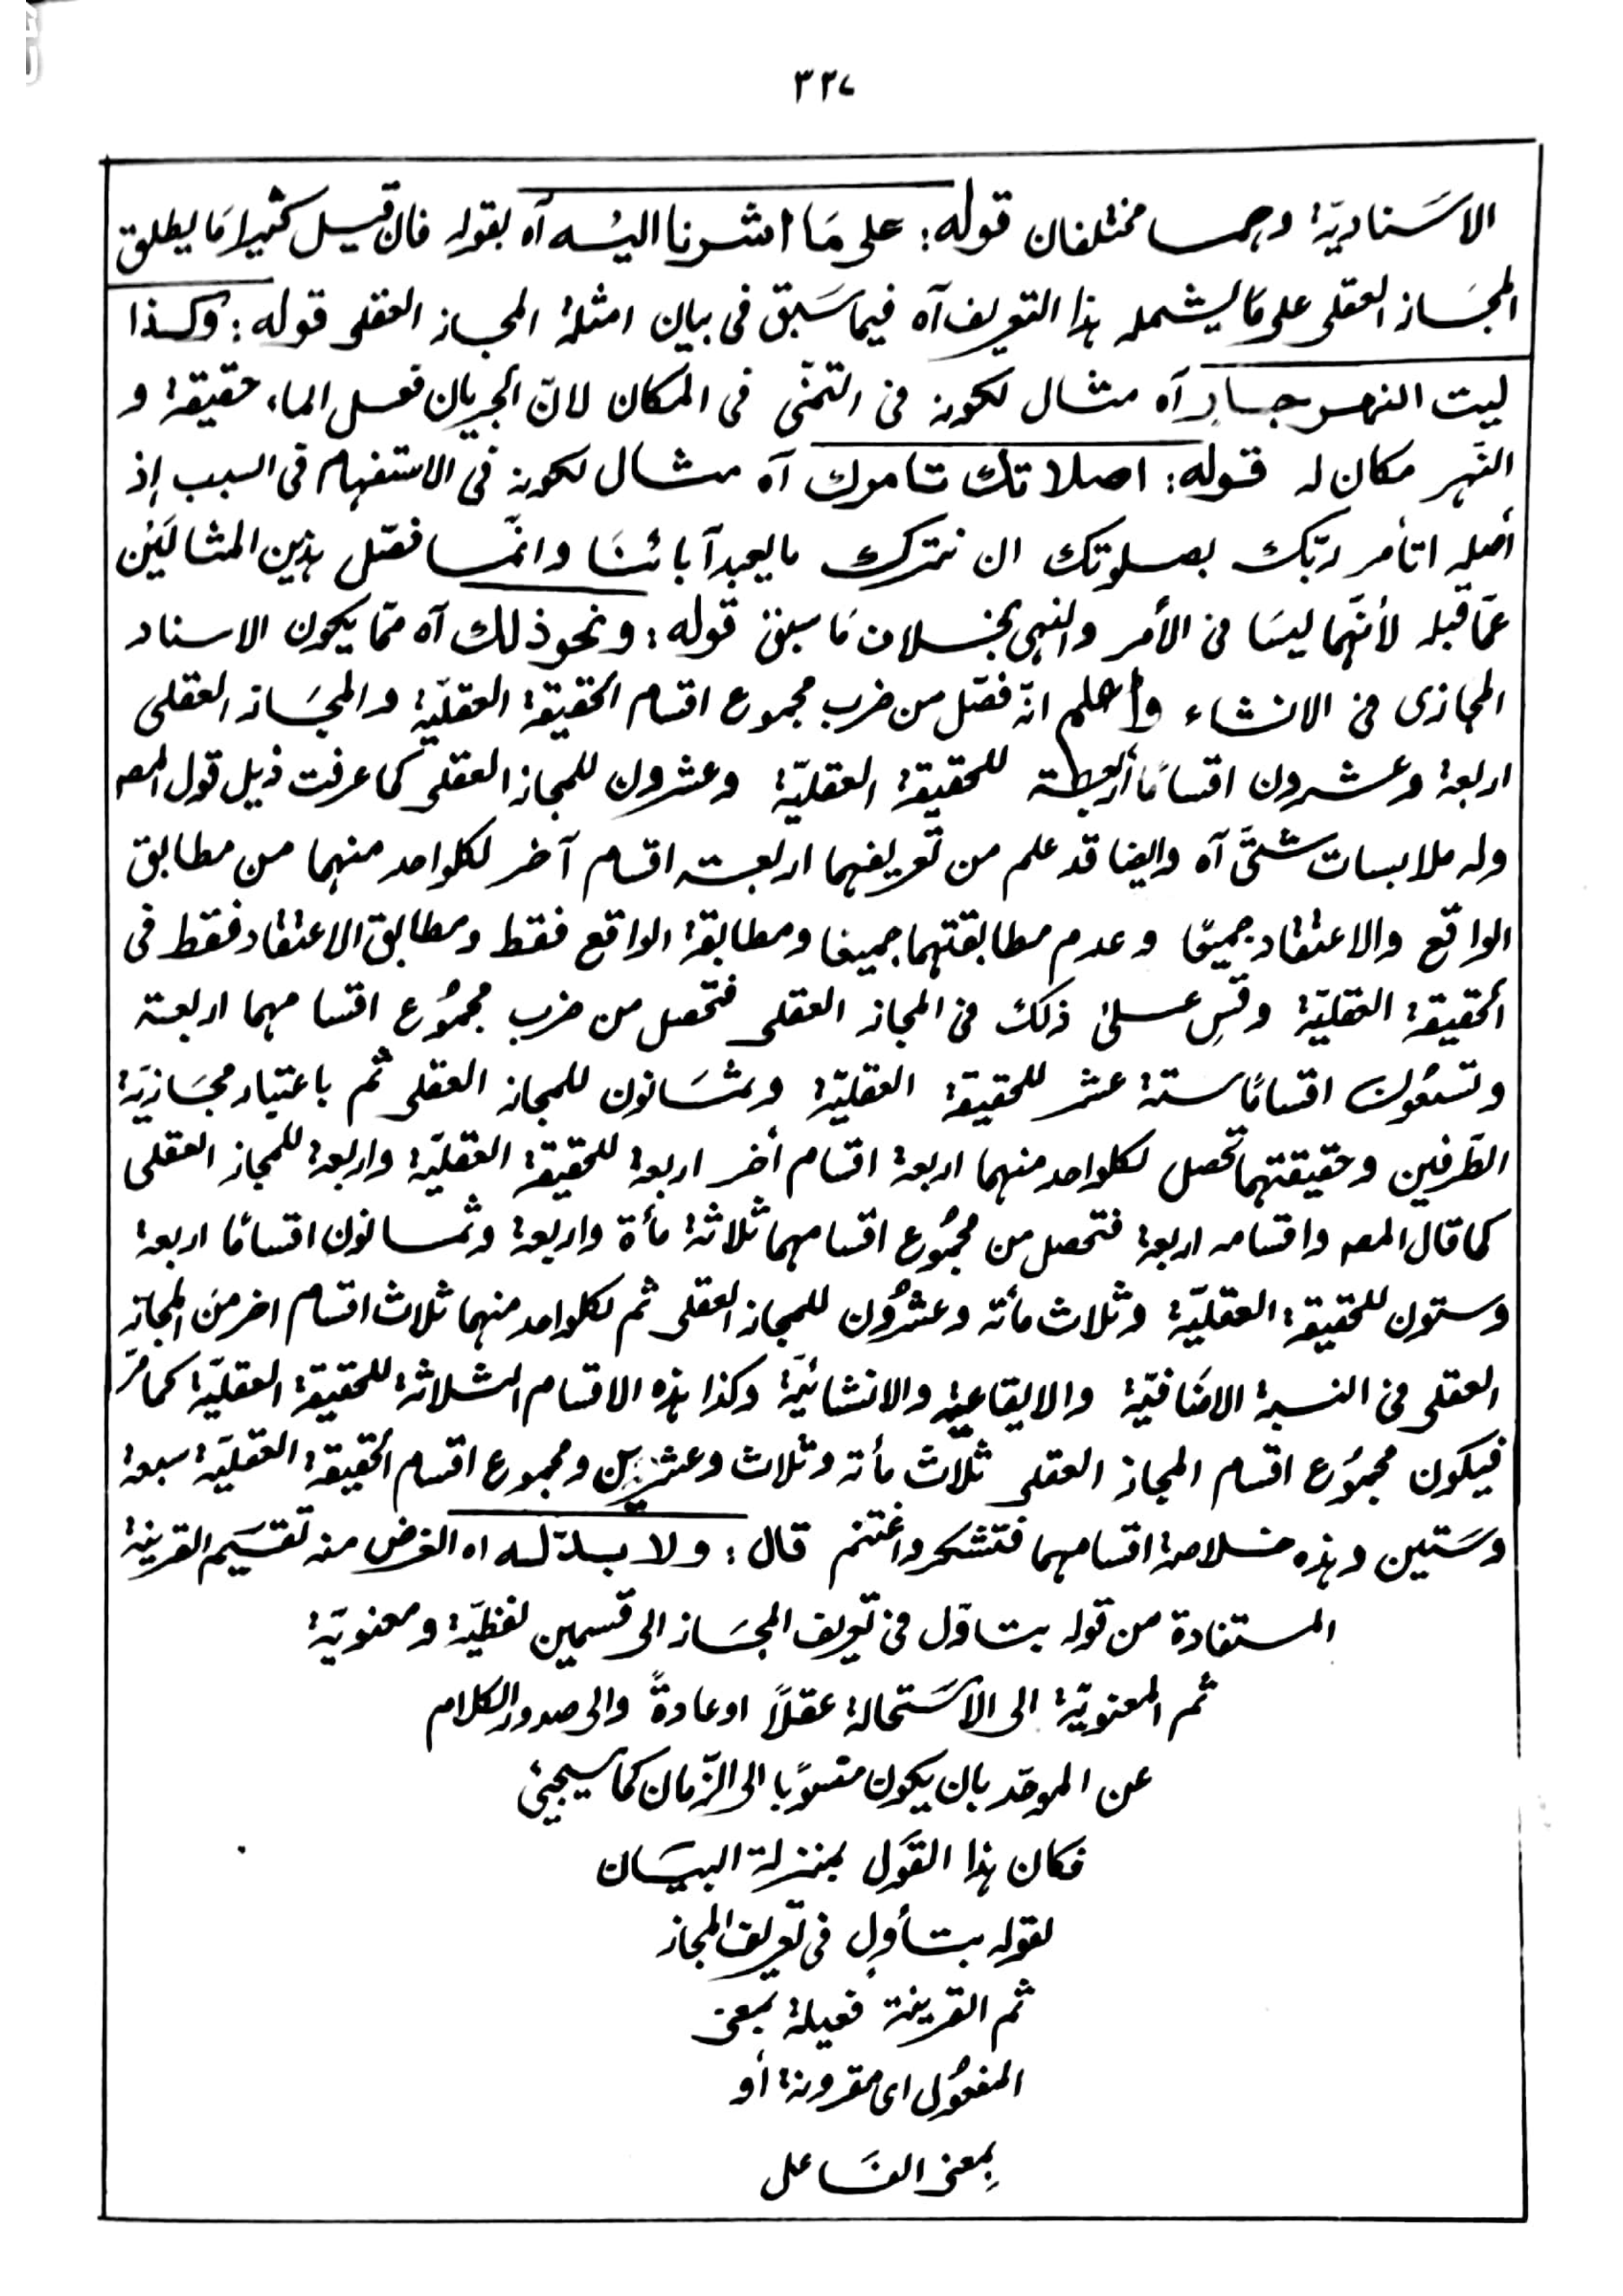 ٣٢٧
الاسَناديّة وهما مختلفان قوله: على مَا اشرنا اليُه آه بقوله فان قيل كثيرا مَا يطلق
المجَاز العقلى على مَا يشمله هذا التعريف آه فيما سَبق فى بيان امثلة المجاز العقلى قوله: وكذا
ليت النهر جار آه مثال لكونه فى التمنّى فى المكان لانّ الجريان فعل الماء حقيقة و
النّهر مكان له قوله: اصلاتك تامرك آه مثال لكونه فى الاستفهام فى السبب إذ
أصله اتأمر ربّك بصلوتك ان نترك ما يعبد آبائنَا وانّما فصّل هذين المثالَيْن
عمّا قبله لأنّهما ليسَا فى الأمر والنهى بخلاف مَا سبق قوله: ونحو ذلك آه ممّا يكون الاسناد
المجازى فى الانشاء واعلم انّه فصّل من ضرب مجموع اقسام الحقيقة العقليّة والمجَاز العقلى
اربعة وعشرون اقسامًا أربعة للحقيقة العقليّة وعشرون للمجاز العقلى كما عرفت ذيل قول المص
وله ملابسات شتَّى آه وايضا قد علم من تعريفهما اربعة اقسام آخر لكلواحد منهما من مطابق
الواقع والاعتقاد جميعًا وعدم مطابقتهما جميعا ومطابقة الواقع فقط ومطابق الاعتقاد فقط فى
الحقيقة العقليّة وقسِ على ذلك فى المجاز العقلى فتحصل من ضرب مجمُوع اقسامهما اربعة
وتسعُون اقسامًا ستة عشر للحقيقة العقليّة وثمَانون للمجاز العقلى ثم باعتبار مجَازيّة
الطّرفين وحقيقتهما تحصل لكلواحد منهما اربعة اقسام أخر اربعة للحقيقة العقليّة واربعة للمجاز العقلى
كما قال المص واقسامه اربعة فتحصل من مجمُوع اقسامهما ثلاثة مأة واربعة وثمانون اقسامًا اربعة
وستون للحقيقة العقليّة وثلاث مأة وعشرُون للمجاز العقلى ثم لكلواحد منهما ثلاث اقسام اخر منَ المجاز
العقلى فى النسبة الاضَافيّة والايقاعية والانشائيّة وكذا هذه الاقسام الثلاثة للحقيقة العقليّة كما مرّ
فيكون مجموُع اقسام المجاز العقلى ثلاث مأة وثلاث وعشرين ومجموع اقسام الحقيقة العقليّة سبعة
وسَتين وهذه خلاصة اقسامهما فتشكر واغتنم قال: ولا بدّ له اه الغرض منه تقسَيم القرينة
المستفادة من قوله بتاوّل فى تعريف المجَاز الى قسمين لفظيّة ومعنويّة
ثم المعنويّة الى الاسَتحالة عقلاً او عادةً والى صدور الكلام
عن الموحّد بان يكون منسوبًا الى الزّمان كما سَيجيئ
فكان هذا القَول بمنزلة البيَان
لقوله بتأول فى تعريف المجاز
ثم القرينة فعيلة بمعنى
المفعُول اى مقرونة أو
بِمعنى الفَاعل